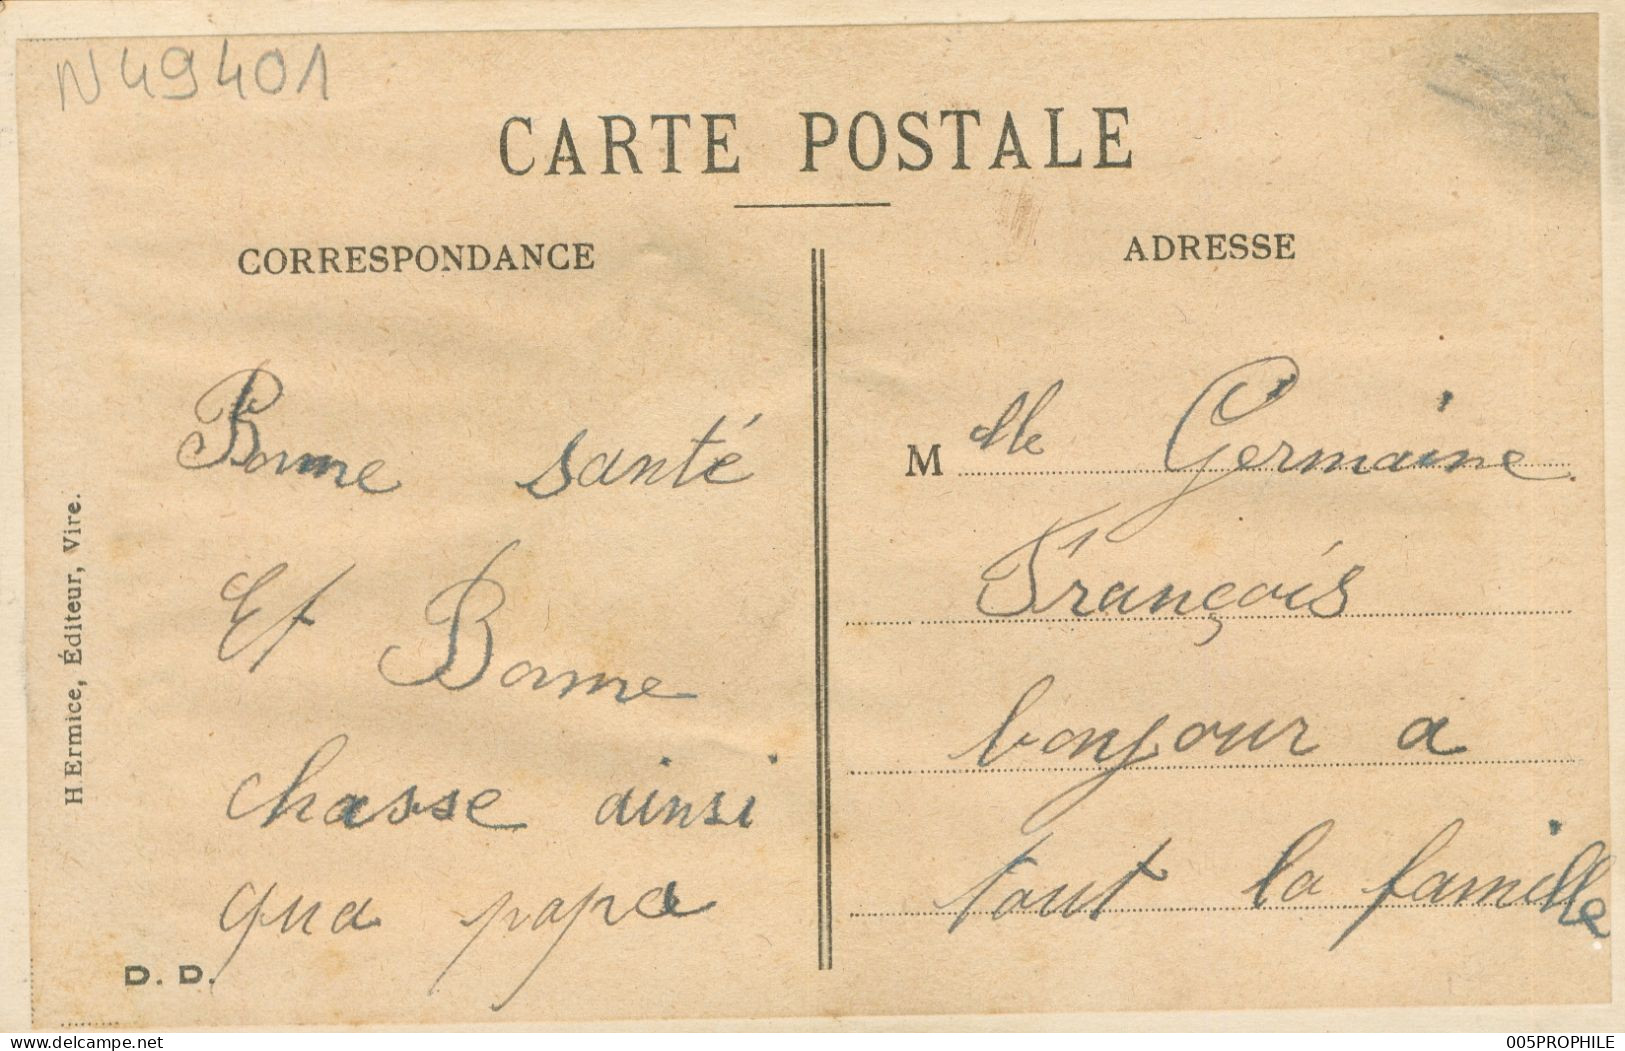 N49401
CARTE POSTALE
CORRESPONDANCE
ADRESSE
Bonne santé
Et Bonne
chasse ainsi
qua papa
Mlle Germaine
François
bonjour a
tout la famille
H. Ermice, Éditeur, Vire.
D. D.
www.delcampe.net
005PROPHILE